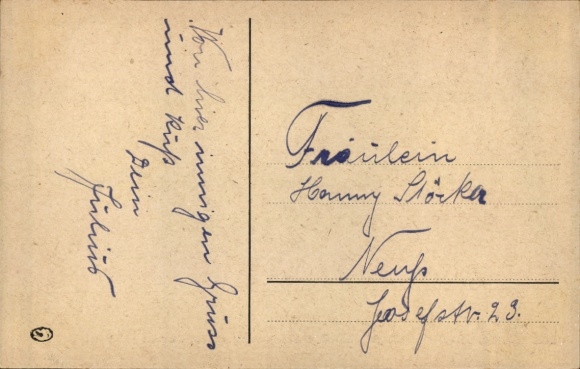 Von hier innigen Gruss
und Kuß
Dein
Julius
Fräulein
Hanny Störker
Neuß
Josefstr. 23.